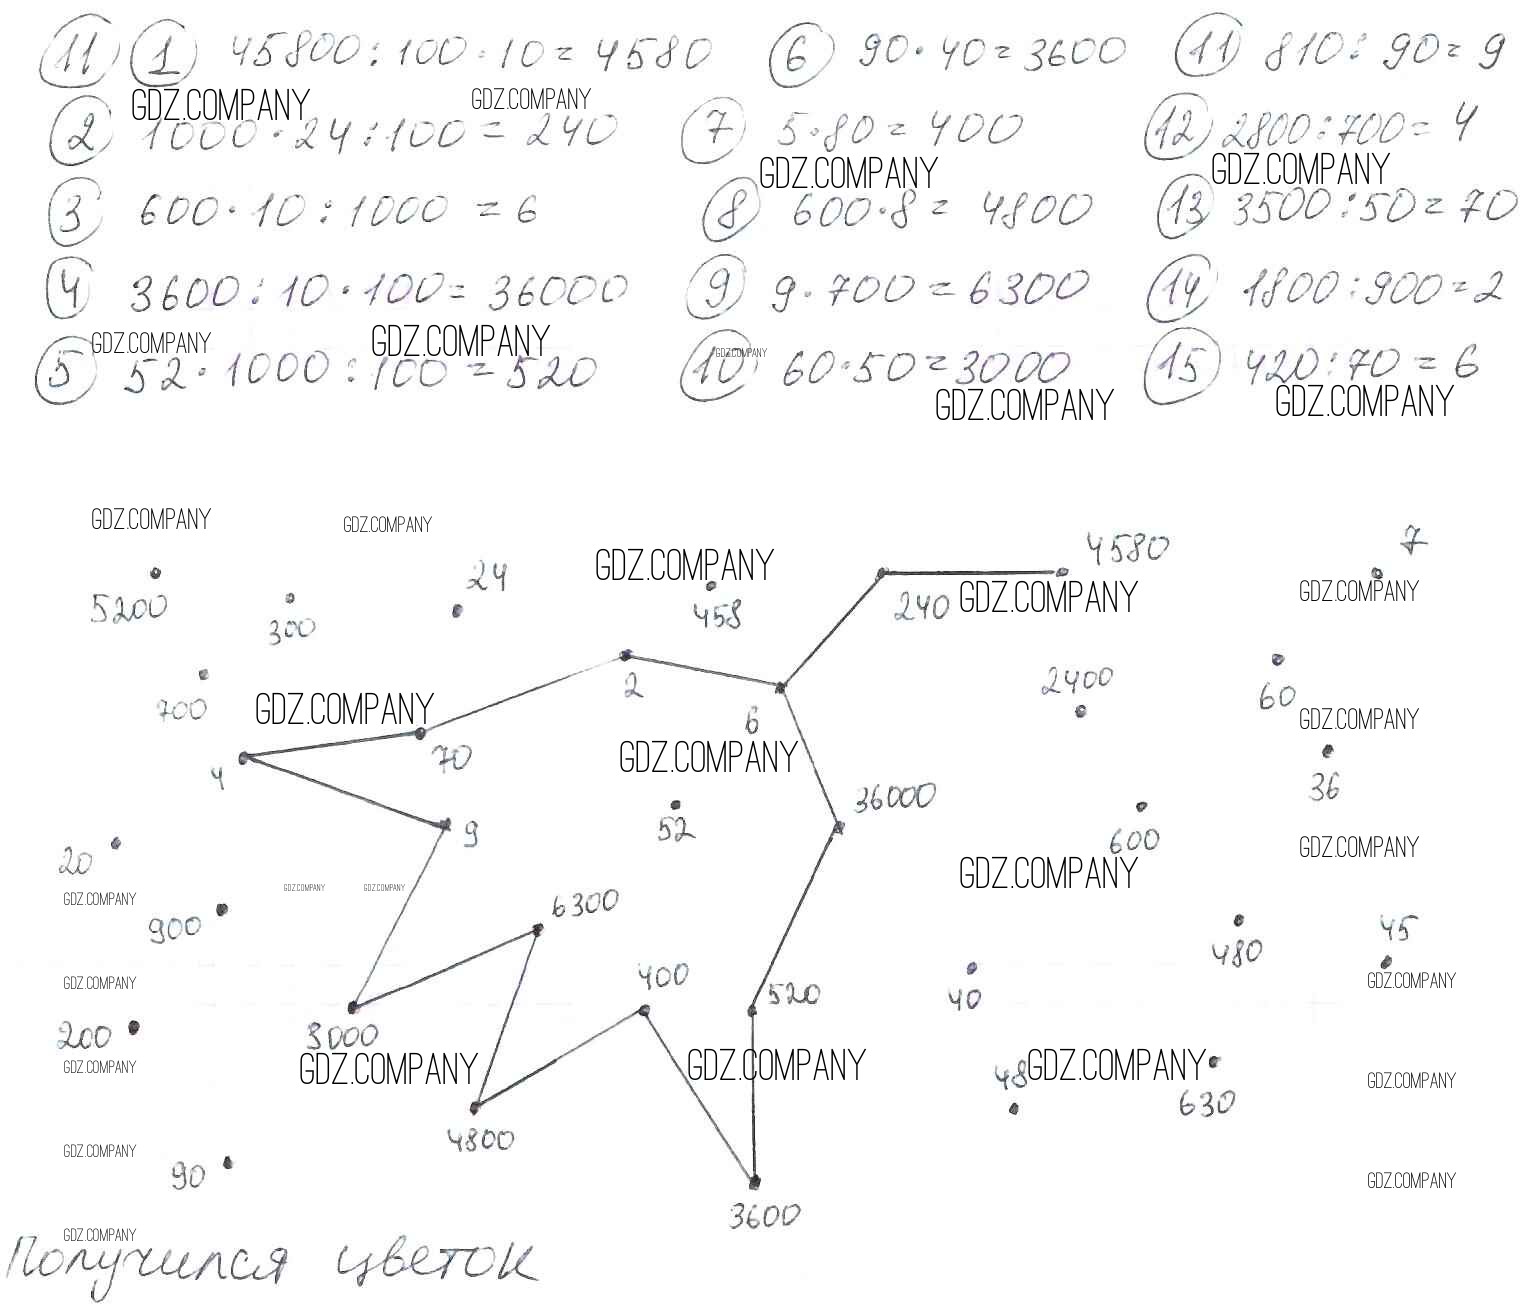 11 1 45800 : 100 · 10 = 4580 6 90 · 40 = 3600 11 810 : 90 = 9
GDZ.COMPANY GDZ.COMPANY
2 1000 · 24 : 100 = 240 7 5 · 80 = 400 12 2800 : 700 = 4
GDZ.COMPANY GDZ.COMPANY
3 600 · 10 : 1000 = 6 8 600 · 8 = 4800 13 3500 : 50 = 70
4 3600 : 10 · 100 = 36000 9 9 · 700 = 6300 14 1800 : 900 = 2
GDZ.COMPANY GDZ.COMPANY GDZ.COMPANY
5 52 · 1000 : 100 = 520 10 60 · 50 = 3000 15 420 : 70 = 6
GDZ.COMPANY GDZ.COMPANY
GDZ.COMPANY GDZ.COMPANY
4580 7
GDZ.COMPANY
24
GDZ.COMPANY GDZ.COMPANY
5200 300 458 240
2400 60
2
700 GDZ.COMPANY 6 GDZ.COMPANY
70 GDZ.COMPANY
4 36
36000
9 52 600 GDZ.COMPANY
20 GDZ.COMPANY
GDZ.COMPANY GDZ.COMPANY
GDZ.COMPANY 6300
900 45
480
400 GDZ.COMPANY
GDZ.COMPANY 520 40
200 3000
GDZ.COMPANY GDZ.COMPANY GDZ.COMPANY GDZ.COMPANY
48 GDZ.COMPANY
630
4800
GDZ.COMPANY
90 GDZ.COMPANY
3600
GDZ.COMPANY
Получился цветок